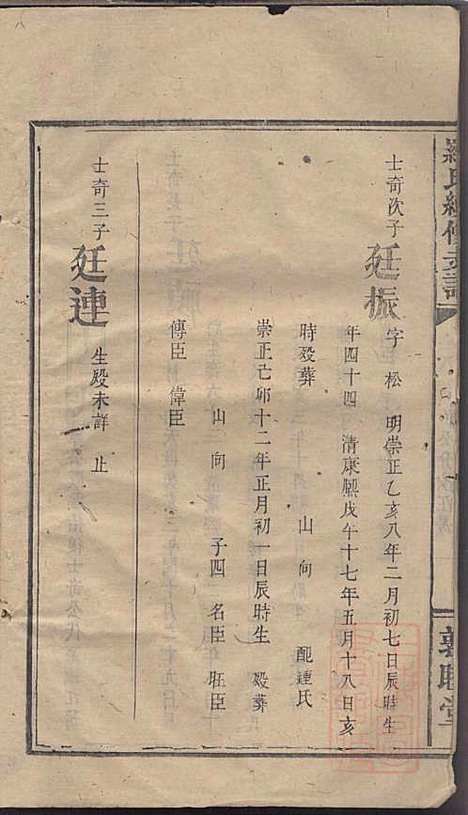 羅氏續修支譜
敦睦堂
士奇次子 廷振 字松 明崇正乙亥八年二月初七日辰時生
年四十四 清康熙戊午十七年五月十八日亥
時殁葬 山 向 配鍾氏
崇正己卯十二年正月初一日辰時生 殁葬
山 向 子四 名臣 臣
傳臣 偉臣
士奇三子 廷連 生殁未詳 止